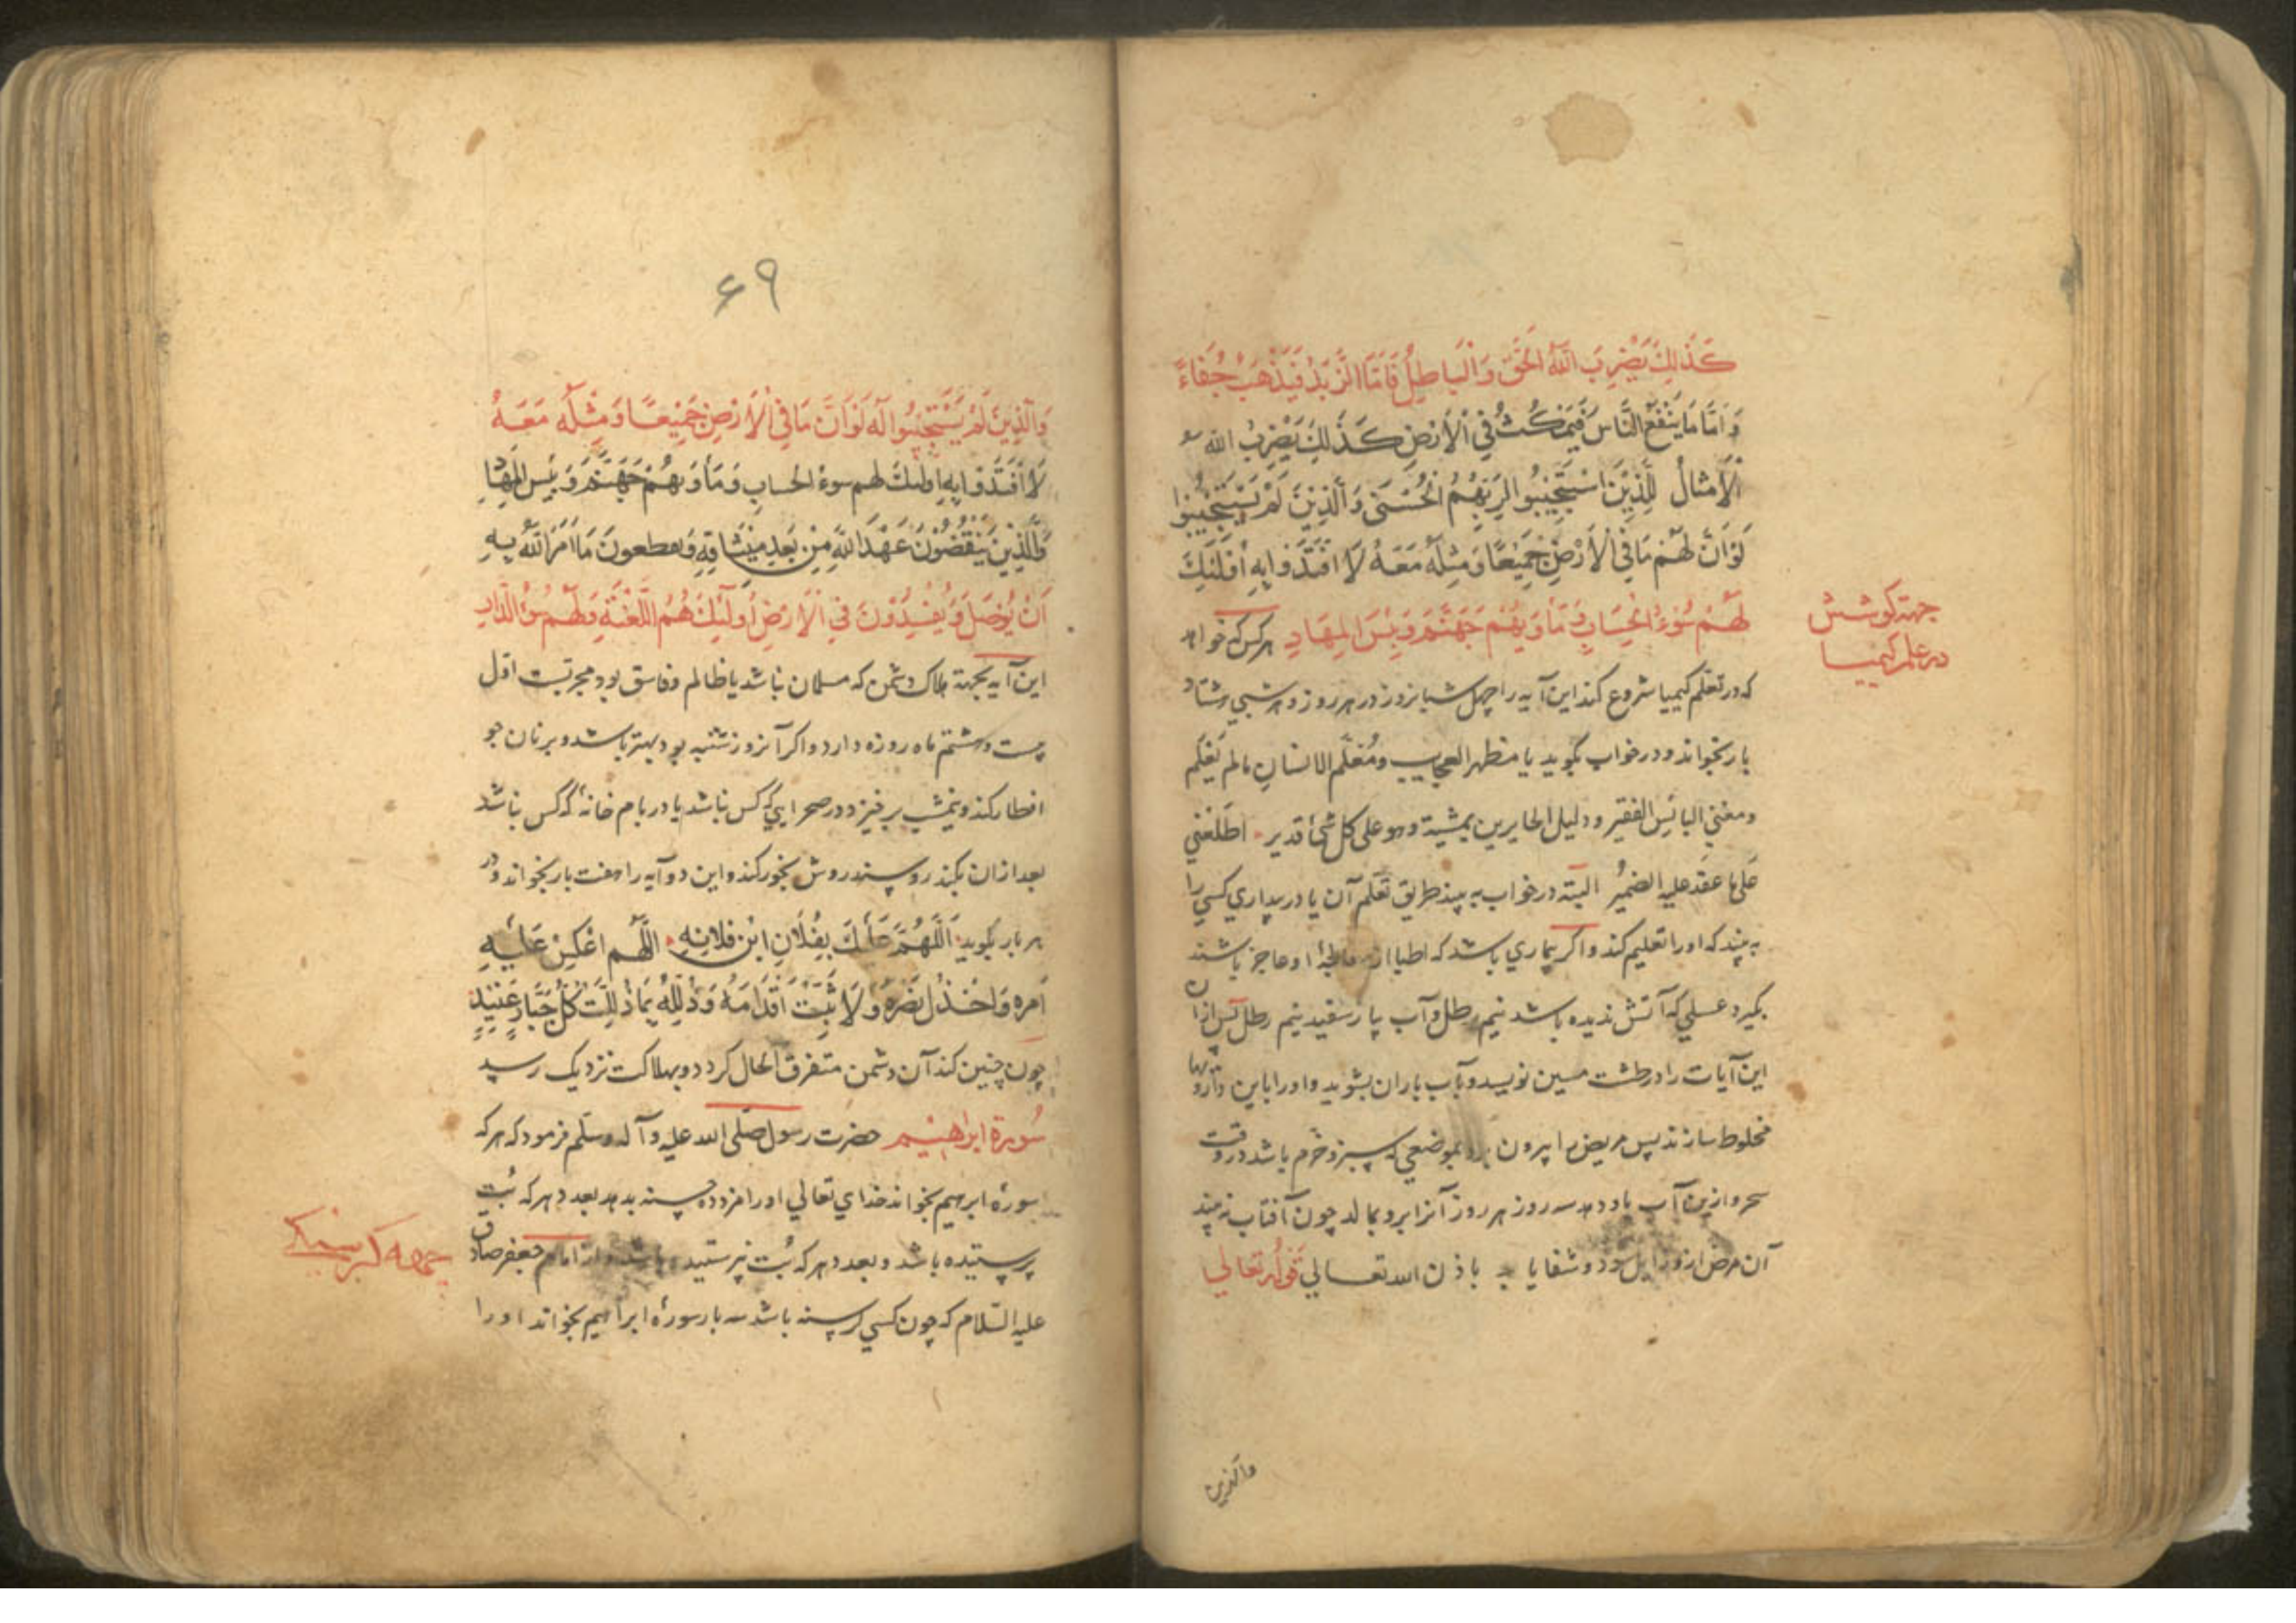 كَذَلِكَ يَضْرِبُ اللَّهُ الْحَقَّ وَالْبَاطِلَ فَأَمَّا الزَّبَدُ فَيَذْهَبُ جُفَاءً
وَ اَمَّا مَا يَنْفَعُ النَّاسَ فَيَمْكُثُ فِي الْأَرْضِ كَذَلِكَ يَضْرِبُ الله
الْأَمْثَالُ لِلَّذِينَ اسْتَجِيبُوا لِرَبِّهِمُ الْحُسْنَى وَالَّذِينَ لَمْ يَسْتَجِيبُوا
لَوْ اَنَّ لَهُمْ مَا فِي الْأَرْضِ جَمِيعًا وَمِثْلَهُ مَعَهُ لَا افْتَدَوْا بِهِ أُولَئِكَ
لَهُمْ سُوءُ الْحِسَابِ وَمَأْوَيهُمْ جَهَنَّمُ وَبِئْسَ الْمِهَادِ هر کس که خواهد
جهة کوشش
در علم کیمیا
که در تعلم کیمیا شروع کند این آیه را چهل شبانروز در هر روز و هر شبی هشتاد
بار بخواند و در خواب بگوید یا مظهر العجایب و مُعَلِّم الانسانِ مالم یَعْلَم
ومغنی البائس الفقیر و دلیل الحایرین بمشیة وهو علی کل شئ قدیر اطلعنی
عَلی ما عقد علیه الضمیرُ البته در خواب به بیند طریق تعلم آن یا در بیداری کسی را
به بیند که او را تعلیم کند واکر بیماری باشد که اطبا از معالجهٔ او عاجز باشند
بکیرد عسلی که آتش ندیده باشد نیم رطل وآب پیاز سفید نیم رطل پس ازان
این آیات را در طشت مسین نویسد و بآب باران بشوید و او را باین داروها
مخلوط سازند پس مریض را بیرون برد بموضعی که سبز و خرم باشد در وقت
سحر و ازین آب باو دهد سه روز هر روز آنرا برو بمالد چون آفتاب نه بیند
آن مرض ازو زایل شود و شفا یابد باذن الله تعالی قوله تعالی
والذین
۶۹
وَالَّذِينَ لَمْ يَسْتَجِيبُوا لَهُ لَوْ اَنَّ مَا فِي الْأَرْضِ جَمِيعًا وَمِثْلَهُ مَعَهُ
لَا افْتَدَوْا بِهِ اولئك لهم سوءُ الحساب وَمَأْوَيهُمْ جَهَنَّمُ وَبِئْسَ الْمِهَادِ
وَالَّذِينَ يَنْقُضُونَ عَهْدَ اللَّهِ مِنْ بَعْدِ مِيثَاقِهِ وَيقطعونَ مَا اَمَرَ اللَّهُ بِهِ
اَنْ يُوصَلَ وَيُفْسِدُونَ فِي الْأَرْضِ أُولَئِكَ هُمُ اللَّعْنَةُ وَلَهُمْ سُوءُ الدَّارِ
این آیه بجهة هلاک دشمن که مسلمان نباشد یا ظالم و فاسق بود مجربست اول
بیست و هشتم ماه روزه دارد واکر آنروز شنبه بود بهتر باشد و بر نان جو
افطار کند و نیمشب بر خیزد در صحرایی که کس نباشد یا در بام خانهٔ که کس نباشد
بعد ازان بکندر و سندروش بخور کند و این دو آیه را هفت بار بخواند و در
هر بار بکوید اَللَّهُمَّ عَلَيْكَ بِفُلَانِ ابْنِ فلانه اللَّهُم اعْكِسْ عَلَيْهِ
اَمره وَاخْذُل نصره وَلَا تُثَبِّتْ اَقْدَامَهُ وَذَلِّلْهُ بِمَا ذَلَّلْتَ كُلَّ جَبَّارٍ عَنِيدٍ
چون چنین کند آن دشمن متفرق الحال کردد و بهلاکت نزدیک رسد
سُورة ابراهیم حضرت رسول صلّی الله علیه وآله وسلّم فرمود که هر که
سورهٔ ابرهیم بخواند خدای تعالی او را مزد ده حسنه بدهد بعدد هر که بُت
پرستیده باشد و بعدد هر که بُت نپرستیده باشد و از امام جعفر صادق
جهة کرسنکی
علیه السّلام که چون کسی کرسنه باشد سه بار سورهٔ ابراهیم بخواند او را